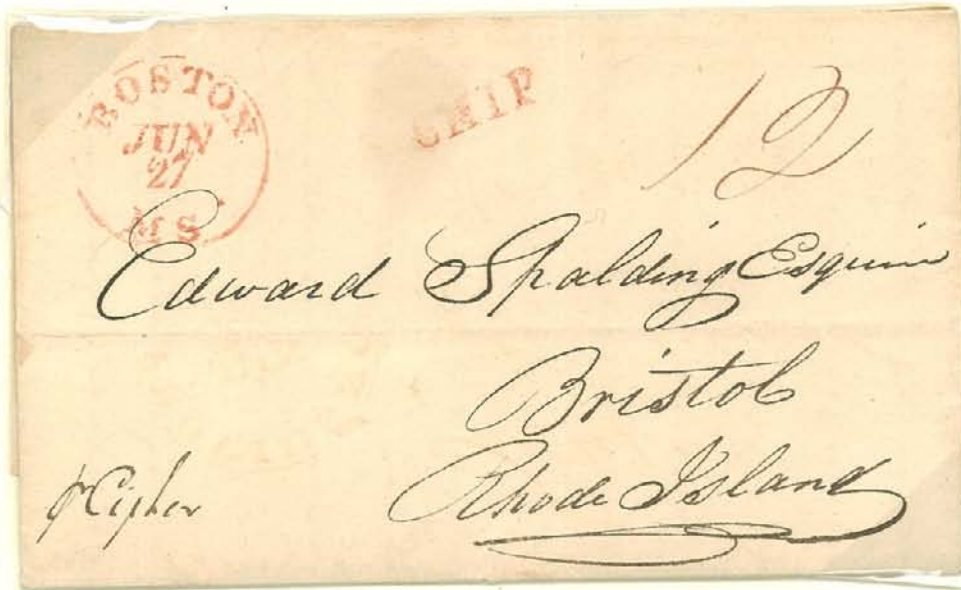 BOSTON
JUN
27
MS.
SHIP
12
Edward Spalding Esquire
Bristol
Rhode Island
pr Cipher